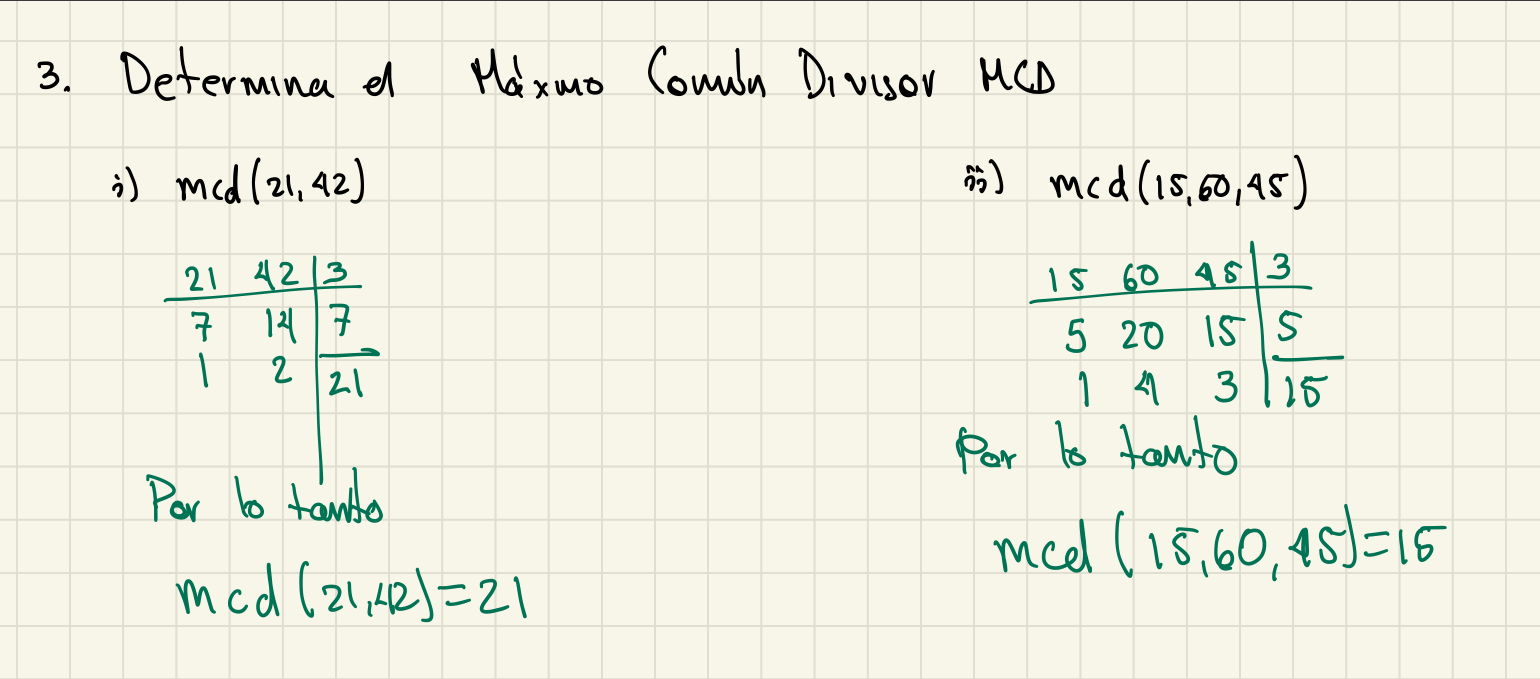 3. Determina el Máximo Común Divisor MCD
i) mcd(21,42)
21 42 | 3
7 14 | 7
1 2 | 21
Por lo tanto
mcd(21,42)=21
ii) mcd(15,60,45)
15 60 45 | 3
5 20 15 | 5
1 4 3 | 15
Por lo tanto
mcd(15,60,45)=15